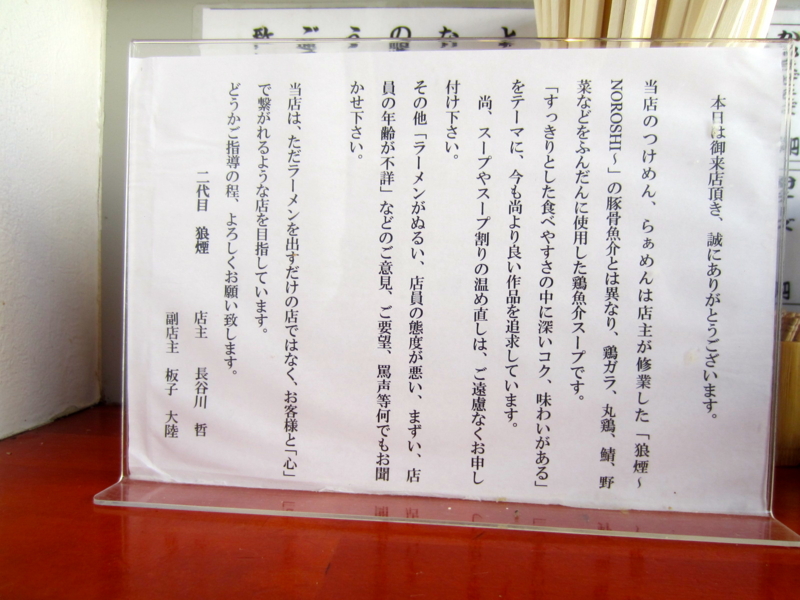 本日は御来店頂き、誠にありがとうございます。
当店のつけめん、らぁめんは店主が修業した「狼煙～
NOROSHI～」の豚骨魚介とは異なり、鶏ガラ、丸鶏、鯖、野
菜などをふんだんに使用した鶏魚介スープです。
「すっきりとした食べやすさの中に深いコク、味わいがある」
をテーマに、今も尚より良い作品を追求しています。
尚、スープやスープ割りの温め直しは、ご遠慮なくお申し
付け下さい。
その他「ラーメンがぬるい、店員の態度が悪い、まずい、店
員の年齢が不詳」などのご意見、ご要望、罵声等何でもお聞
かせ下さい。
当店は、ただラーメンを出すだけの店ではなく、お客様と「心」
で繋がれるような店を目指しています。
どうかご指導の程、よろしくお願い致します。
二代目 狼煙 店主 長谷川 哲
副店主 板子 大陸